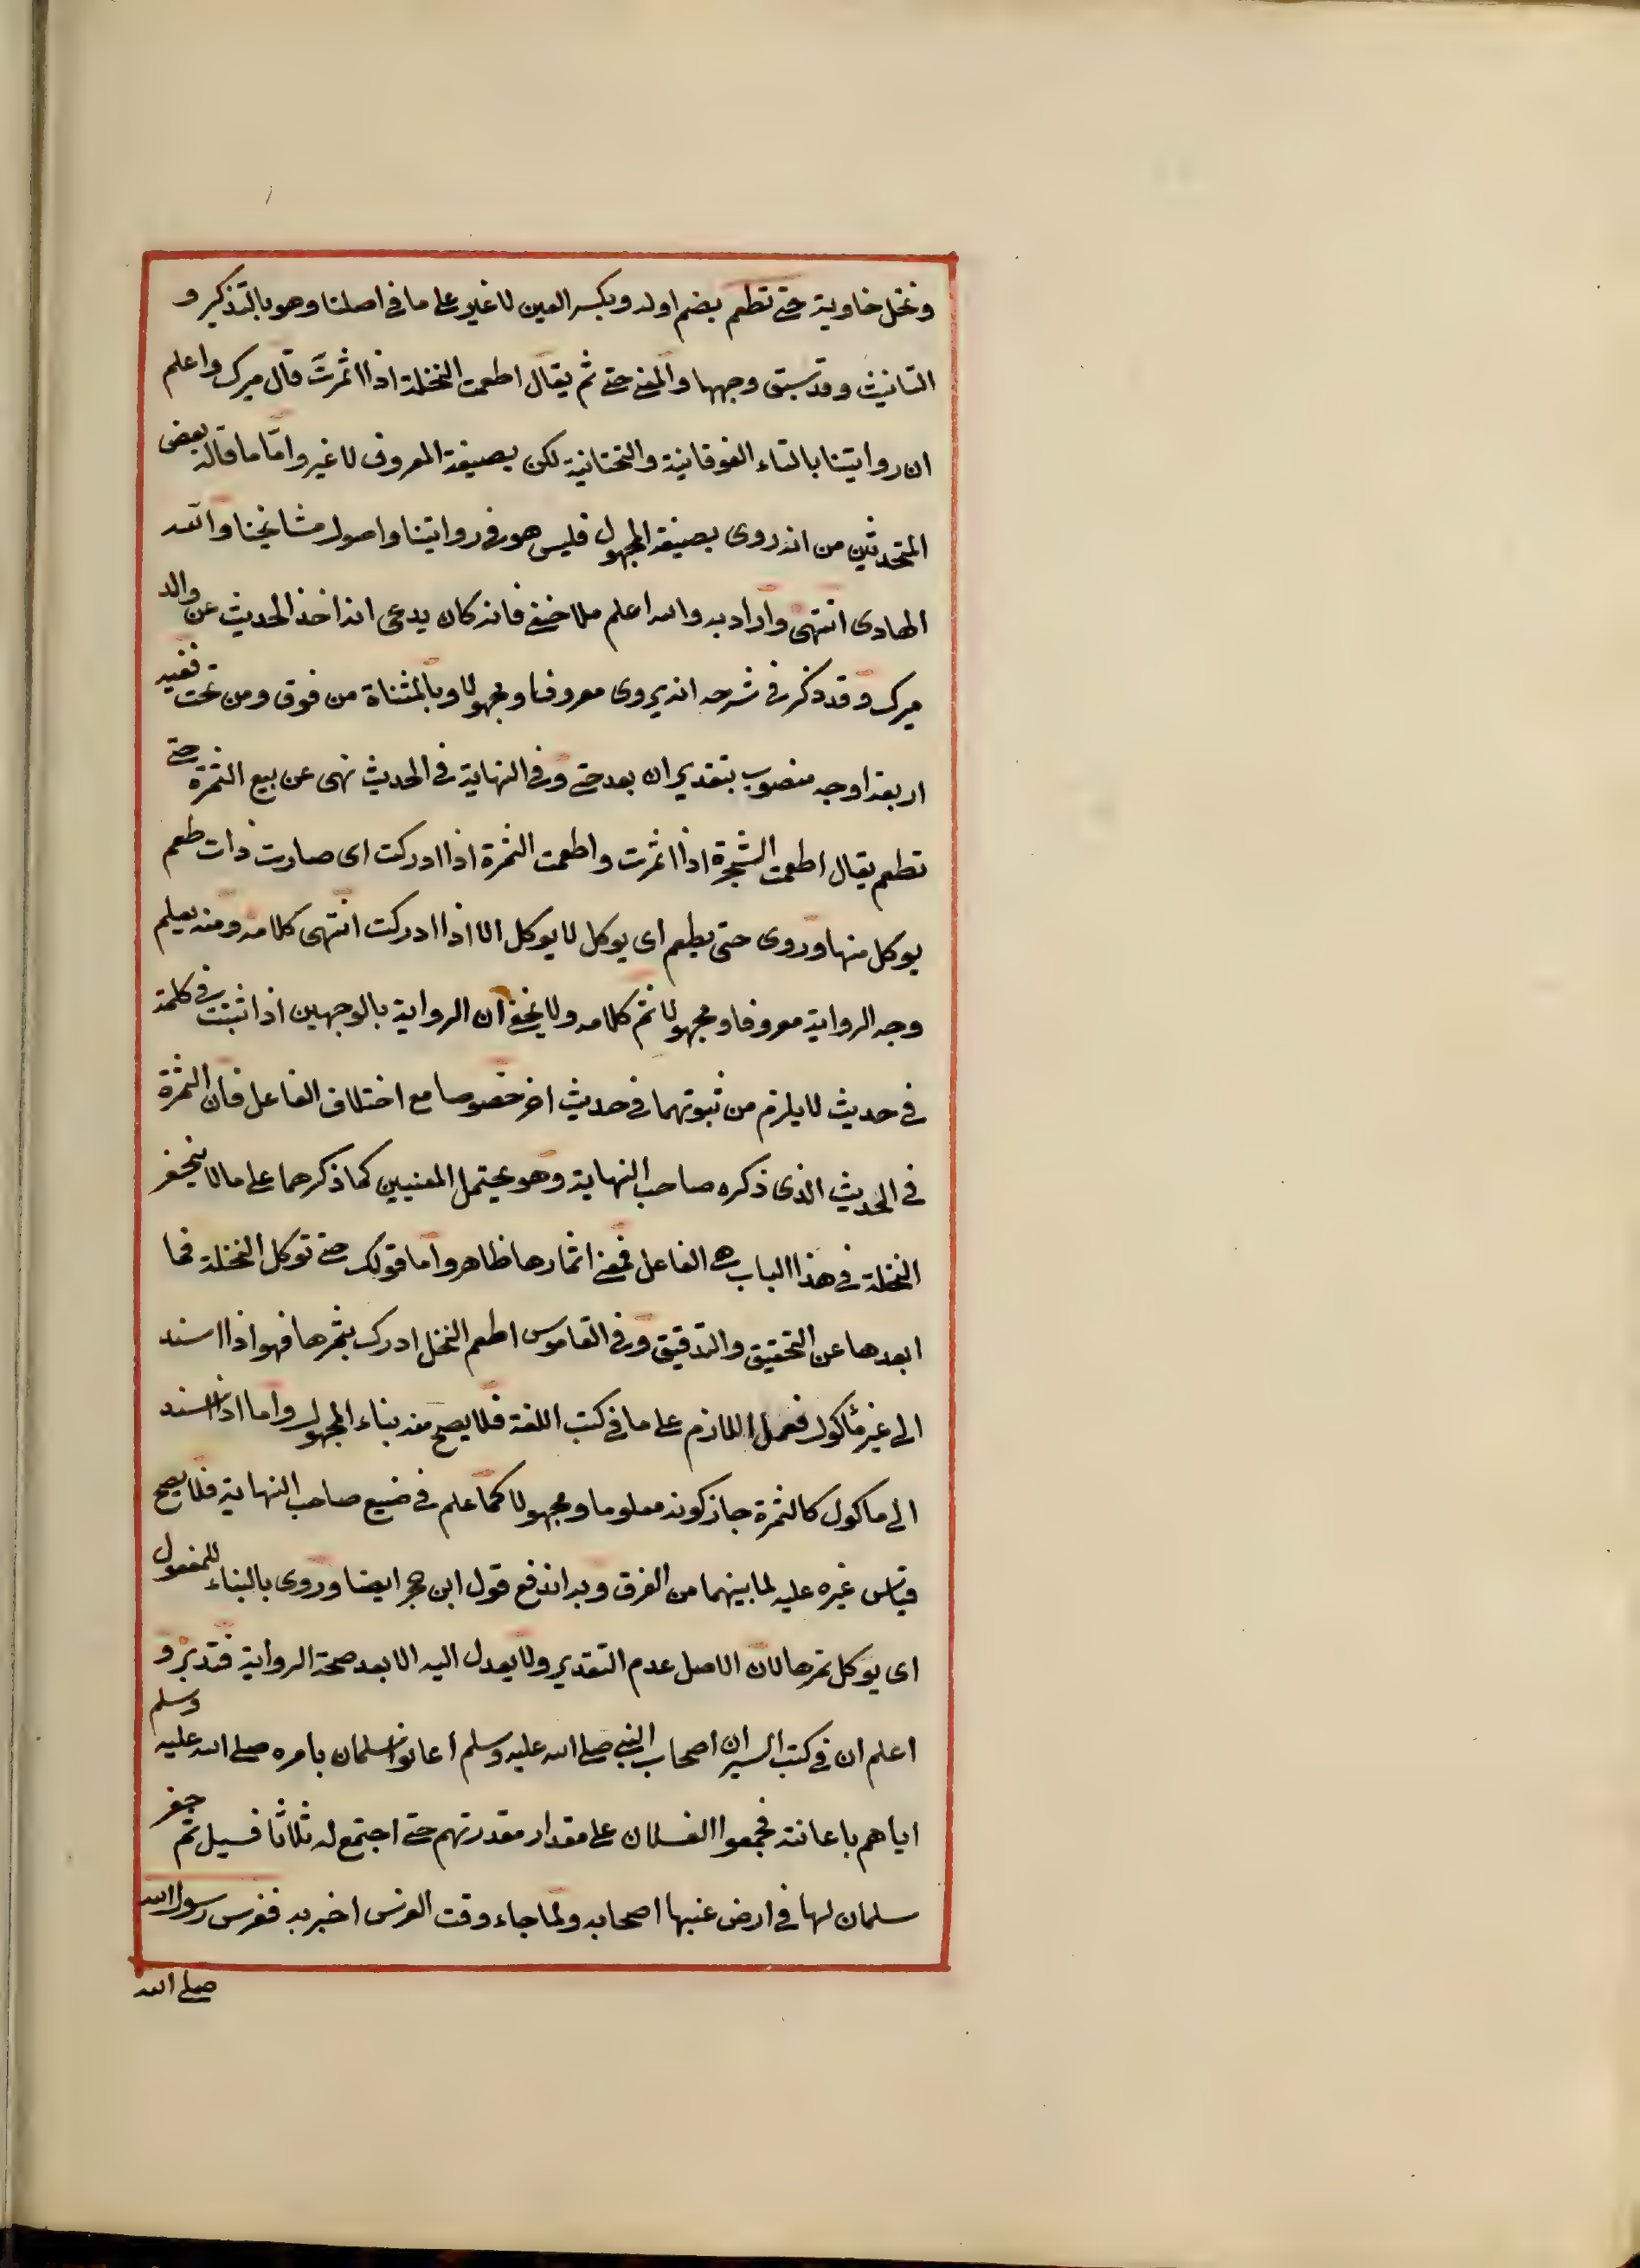 ونخل خاوية حتى تطعم بضم اوله وبكسر العين لا غير على ما في اصلنا وهو بالتذكير و
التانيث وقد سبق وجهها والمعنى حتى ثم يقال اطعمت النخلة اذا اثمرت قال ميرك واعلم
ان روايتنا بالتاء الفوقانية والتحتانية لكن بصيغة المعروف لا غير واما ما قاله بعض
المتحدثين من انه روى بصيغة المجهول فليس هو في روايتنا واصول مشايخنا والله
الهادى انتهى واراد به والله اعلم ملا حنفي فانه كان يدعى انه اخذ الحديث عن والد
ميرك وقد ذكر في شرحه انه يروى معروفا ومجهولا وبالمثناة من فوق ومن تحت ففيه
اربعة اوجه منصوب بتقدير ان بعد حتى وفي النهاية في الحديث نهى عن بيع الثمرة حتى
تطعم يقال اطعمت الشجرة اذا اثمرت واطعمت الثمرة اذا ادركت اى صارت ذات طعم
يوكل منها وروى حتى يطعم اى يوكل لا يوكل الا اذا ادركت انتهى كلامه ومنه يعلم
وجه الرواية معروفا ومجهولا ثم كلامه ولا يخفى ان الرواية بالوجهين اذا ثبتت في كلمة
في حديث لا يلزم من ثبوتهما في حديث اخر خصوصا مع اختلاف الفاعل فان الثمرة
في الحديث الذى ذكره صاحب النهاية وهو يحتمل المعنيين كما ذكرهما على ما لا يخفى
النخلة في هذا الباب هى الفاعل فمعنى اثمارها ظاهر واما قولك حتى توكل النخلة فما
ابعدها عن التحقيق والتدقيق وفي القاموس اطعم النخل ادرك بثمرها فهو اذا اسند
الى غير ماكول فعمل اللازم على ما في كتب اللغة فلا يصح منه بناء المجهول واما اذا اسند
الى ماكول كالثمرة جاز كونه معلوما ومجهولا كما علم في ضيع صاحب النهاية فلا يصح
قياس غيره عليه لما بينهما من الفرق وبه اندفع قول ابن حجر ايضا وروى بالبناء للمفعول
اى يوكل ثمرها لان الاصل عدم التقدير ولا يعدل اليه الا بعد صحة الرواية فتدبر و
اعلم ان في كتب السير ان اصحاب النبى صلى الله عليه وسلم اعانوا سلمان بامره صلى الله عليه وسلم
اياهم باعانته فجمعوا الفسلان على مقدار مقدرتهم حتى اجتمع له ثلاثا فسيل ثم حفر
سلمان لها في ارض عنيها اصحابه ولما جاء وقت الغرس اخبر به فغرس رسول الله
صلى الله